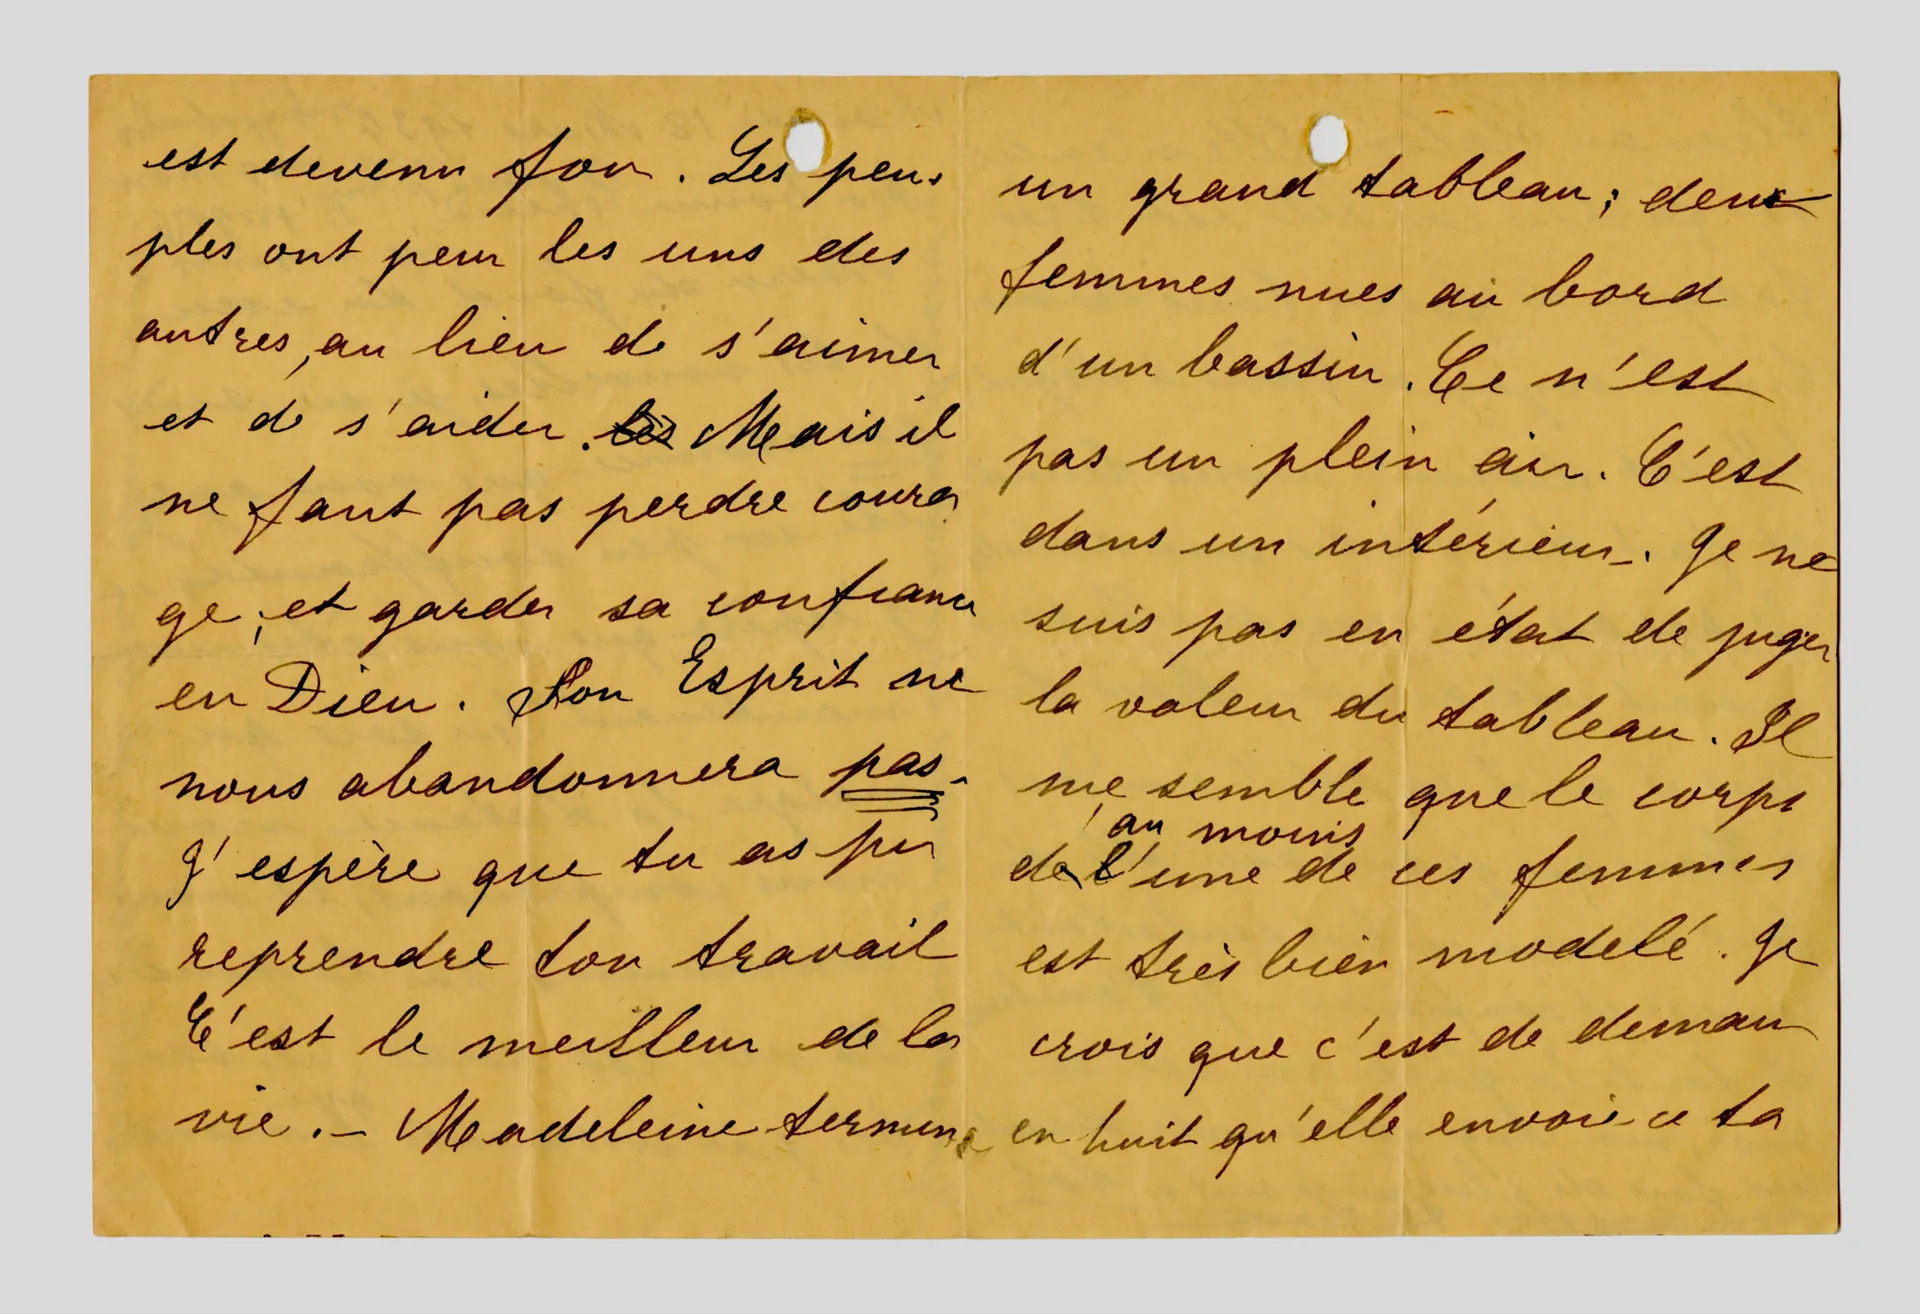 est devenu fou. Les peu-
ples ont peur les uns des
autres, au lieu de s'aimer
et de s'aider. les Mais il
ne faut pas perdre coura
ge, et garder sa confiance
en Dieu. Son Esprit ne
nous abandonnera pas.
J'espère que tu as pu
reprendre ton travail
C'est le meilleur de la
vie. – Madeleine termine
un grand tableau; deux
femmes nues au bord
d'un bassin. Ce n'est
pas un plein air. C'est
dans un intérieur. Je ne
suis pas en état de juger
la valeur du tableau. Il
me semble que le corps
au moins
de l'une de ces femmes
est très bien modelé. Je
crois que c'est de demain
en huit qu'elle envoie ce ta